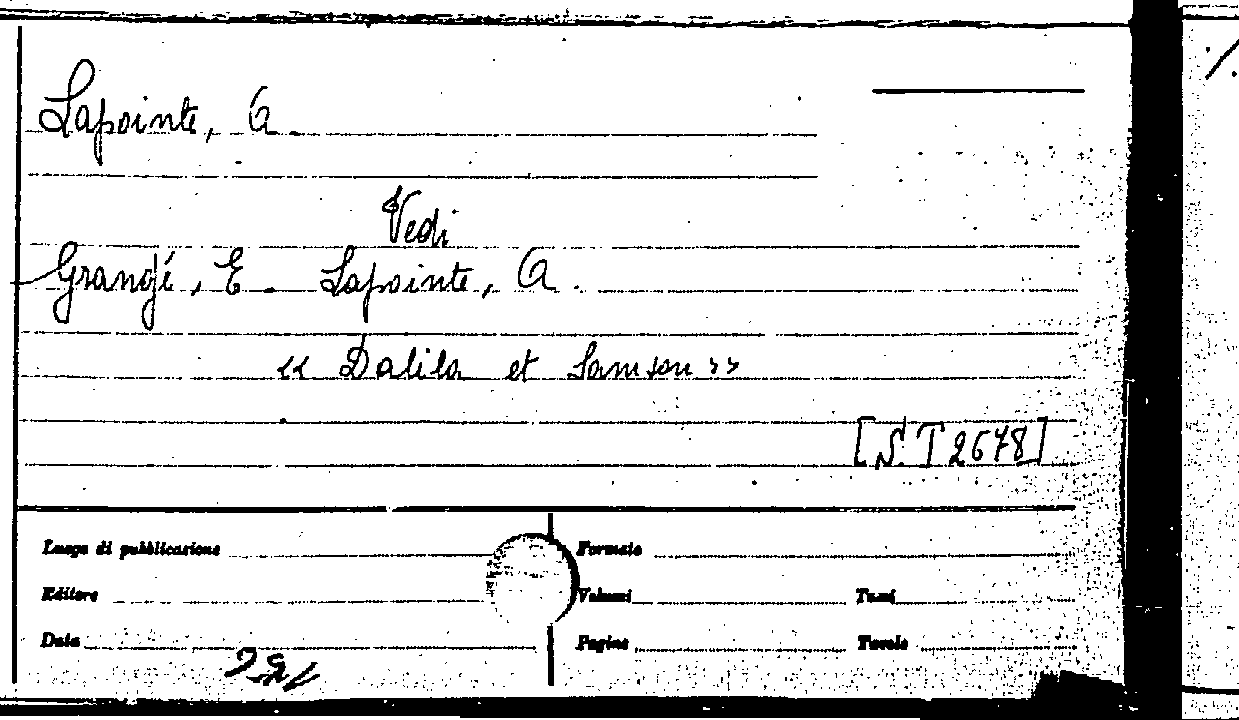 Lapointe, A.
Vedi
Grangé, E. Lapointe, A.
« Dalila et Samson »
[S.T 2678]
Luogo di pubblicazione
Formato
Editore
Volumi
Tomi
Data
Pagine
Tavole